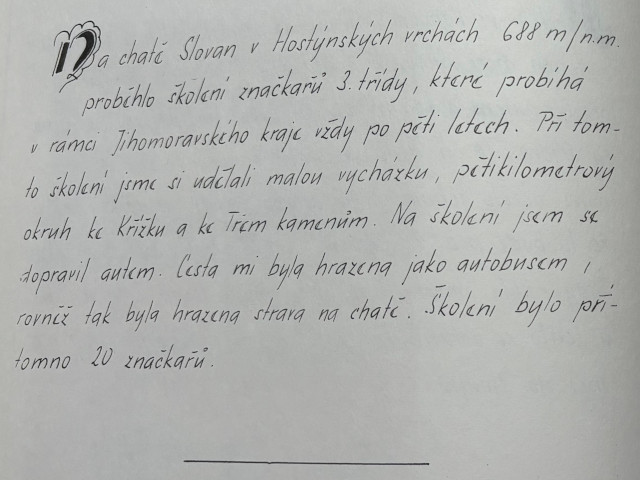 Na chatě Slovan v Hostýnských vrchách 688 m/n.m.
proběhlo školení značkařů 3. třídy, které probíhá
v rámci Jihomoravského kraje vždy po pěti letech. Při tom-
to školení jsme si udělali malou vycházku, pětikilometrový
okruh ke Křížku a ke Třem kamenům. Na školení jsem se
dopravil autem. Cesta mi byla hrazena jako autobusem,
rovněž tak byla hrazena strava na chatě. Školení bylo pří-
tomno 20 značkařů.